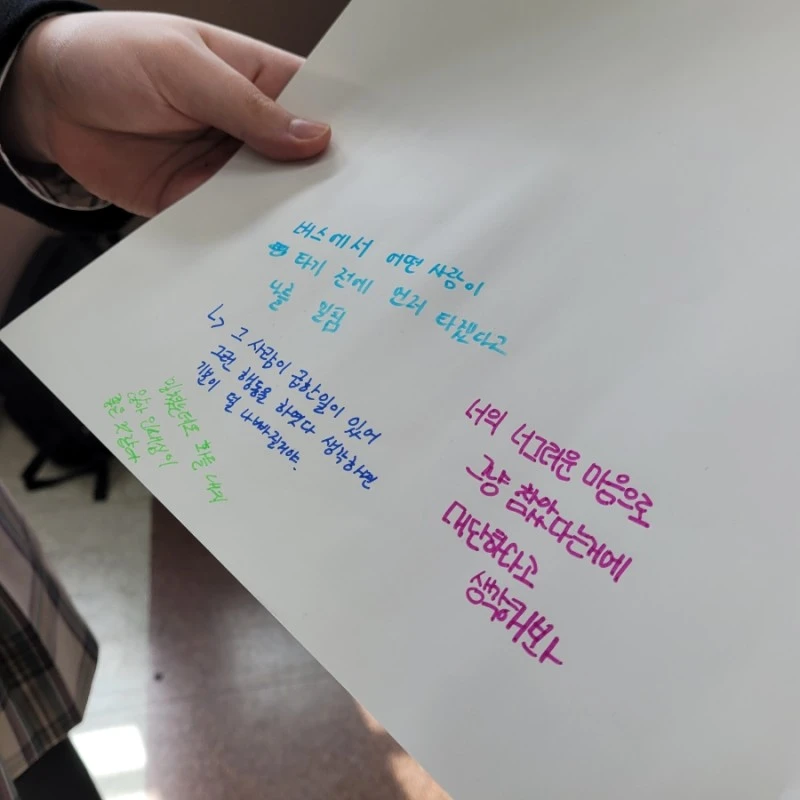 버스에서 어떤 사람이
타기 전에 먼저 타겠다고
나를 밀침
↳ 그 사람이 급한일이 있어
그런 행동을 하였다 생각하면
기분이 덜 나빠질거야.
밀쳤는데도 화를 내지
않아 인내심이
좋은 것 같아
너의 너그러운 마음으로
그냥 참았다는거에
대단하다고
생각해봐